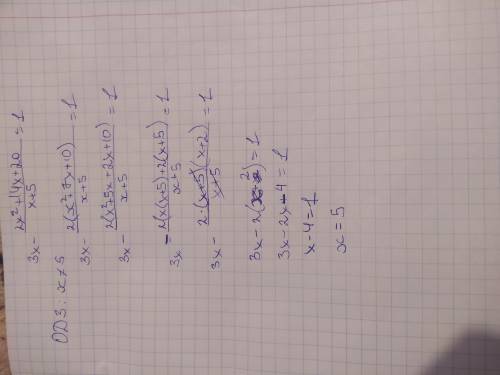 3x - (2x²+14x+20)/(x+5) = 1
ОДЗ: x≠5
3x - 2(x²+7x+10)/(x+5) = 1
3x - 2(x²+5x+2x+10)/(x+5) = 1
3x - 2(x(x+5)+2(x+5)/(x+5) = 1
3x - 2·(x+5)(x+2)/(x+5) = 1
3x - 2(x+2) = 1
3x - 2x - 4 = 1
x - 4 = 1
x = 5